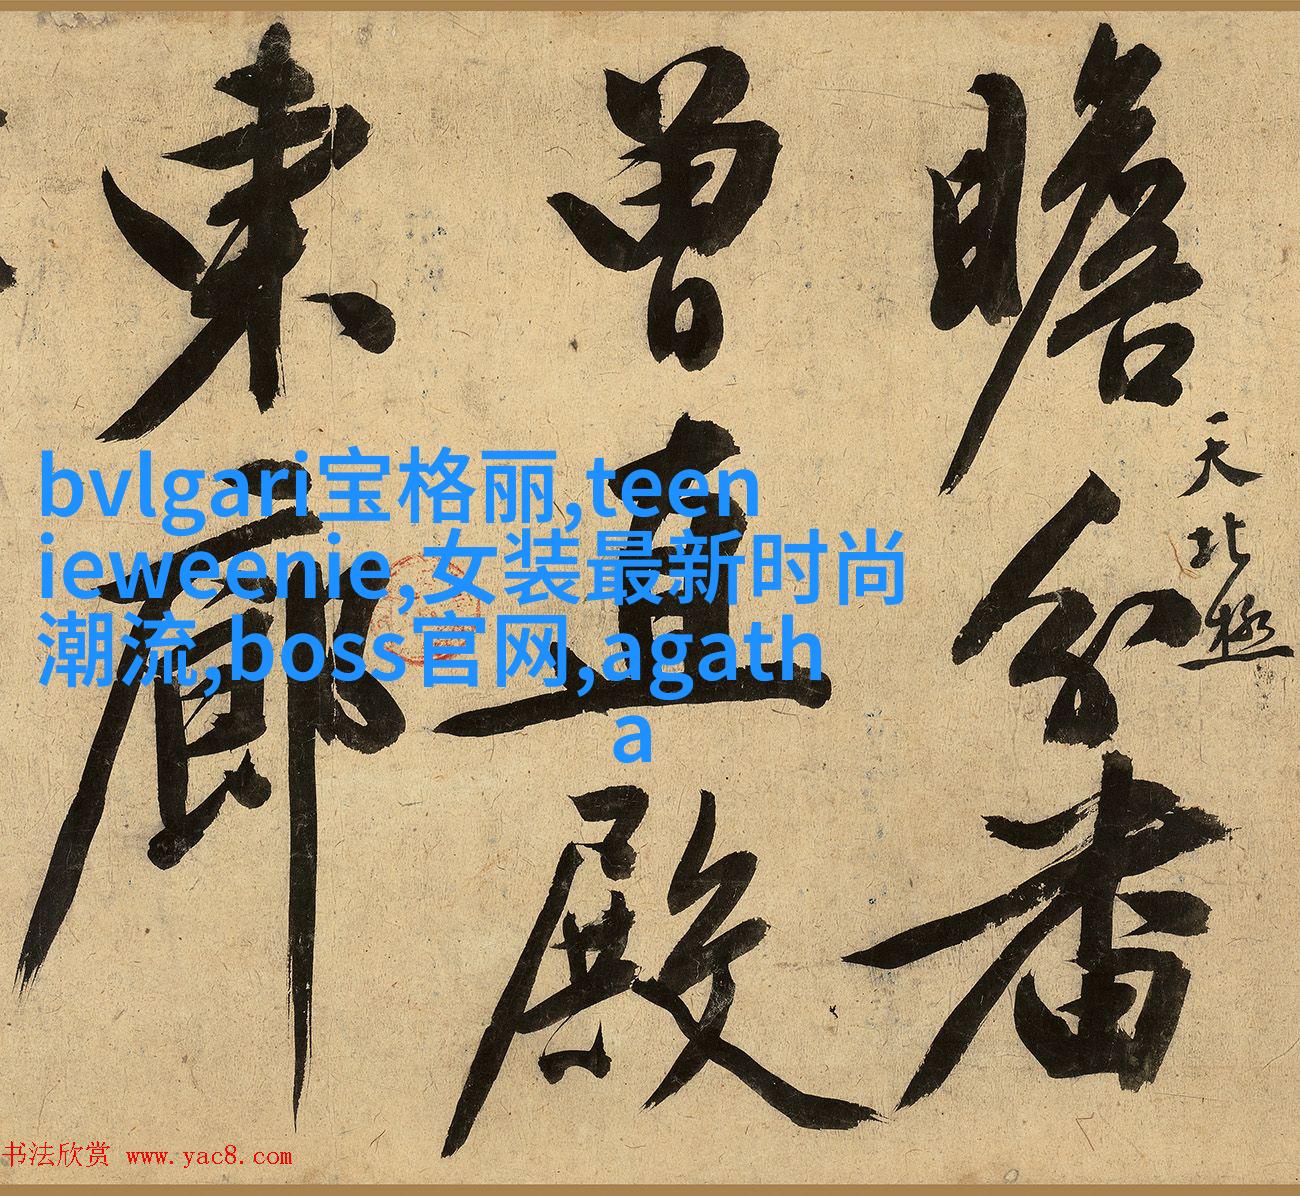 天北極
瞻分番
曾直殿
東廊
bvlgari宝格丽,teen
ieweenie,女装最新时尚
潮流,boss官网,agath
a
书法欣赏 www.yac8.com